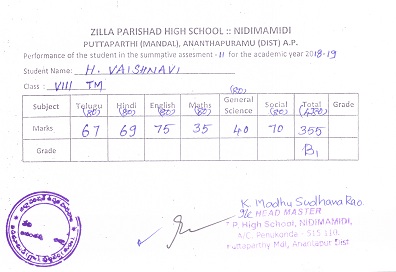 ZILLA PARISHAD HIGH SCHOOL :: NIDIMAMIDI
PUTTAPARTHI (MANDAL), ANANTHAPURAMU (DIST) A.P.
Performance of the student in the summative assesment -II for the academic year 2018-19
Student Name: H. VAISHNAVI
Class : VIII TM
Subject Telugu (80) Hindi (80) English (80) Maths (80) General Science (80) Social (80) Total Grade
Marks 67 69 75 35 40 70 355
Grade B1
K. Madhu Sudhana Rao
HEAD MASTER
Z.P. High School, NIDIMAMIDI,
A/C. Penukonda - 515 110,
Puttaparthy Mdl, Anantapur Dist